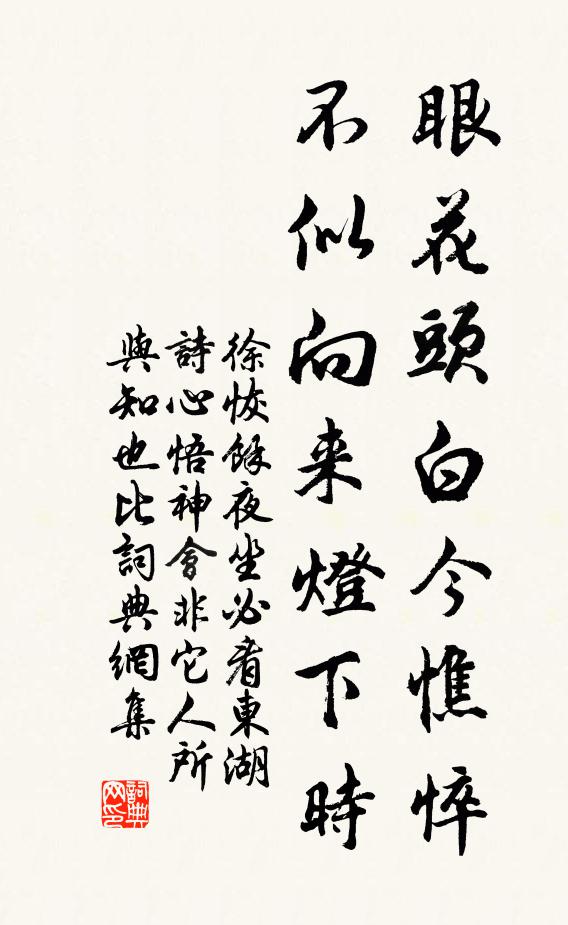 眼花頭白今憔悴
不似向来燈下時
徐恢餘夜坐必看東湖
詩心悟神會非它人所
與知也比詞典網集
詞典网印